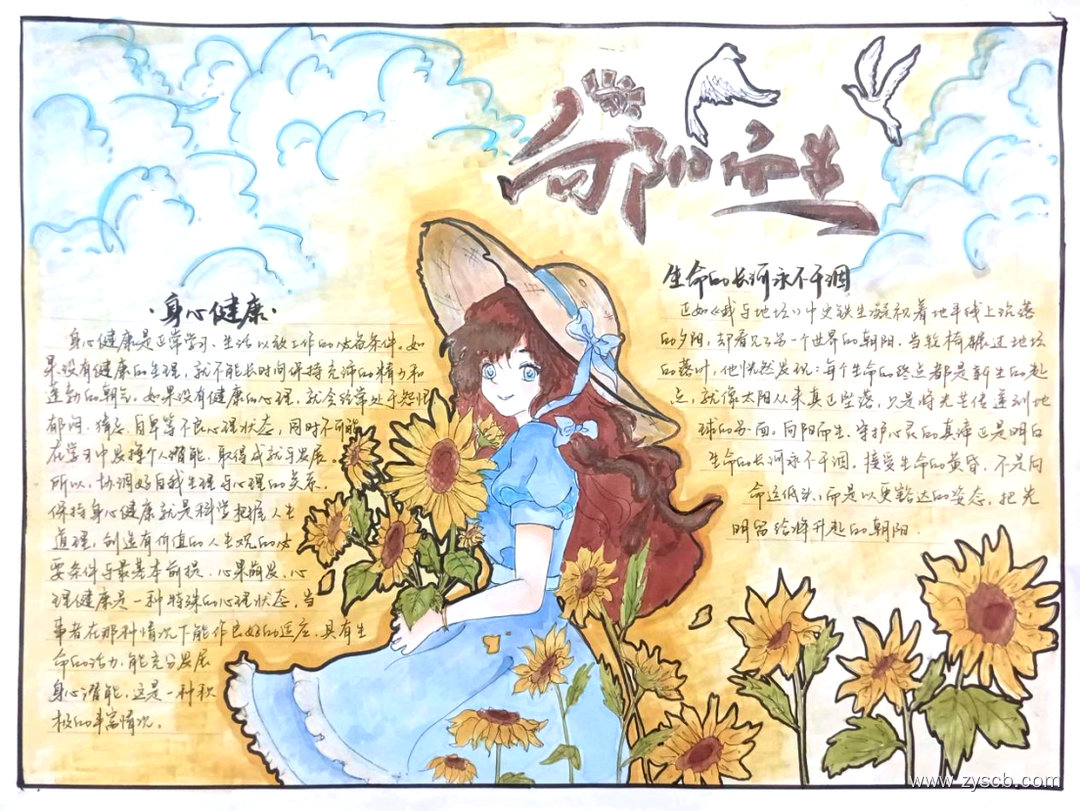 向阳而生
·身心健康·
身心健康是正常学习、生活以致工作的必备条件。如
果没有健康的生理，就不能长时间保持充沛的精力和
蓬勃的朝气，如果没有健康的心理，就会经常处于怨恨
郁闷、猜忌、自卑等不良心理状态，同时不可能
在学习中发挥个人潜能、取得成就与发展。
所以，协调好自我生理与心理的关系，
保持身心健康就是科学把握人生
道理，创造有价值的人生观的必
要条件与最基本前提。心果萌发、心
理健康是一种特殊的心理状态，当
事者在那种情况下能作良好的适应，具有生
命的活力，能充分发展
身心潜能，这是一种积
极的丰富情况。
生命的长河永不干涸
正如《我与地坛》中史铁生凝视着地平线上沉落
的夕阳，却看见了另一个世界的朝阳。当轮椅碾过地坛
的落叶，他恍然发现：每个生命的终点都是新生的起
点，就像太阳从未真正坠落，只是将光芒传递到地
球的另一面。向阳而生，守护心灵的真谛正是明白
生命的长河永不干涸，接受生命的黄昏，不是向
命运低头，而是以更豁达的姿态，把光
明留给将升起的朝阳.
www.zyscb.com